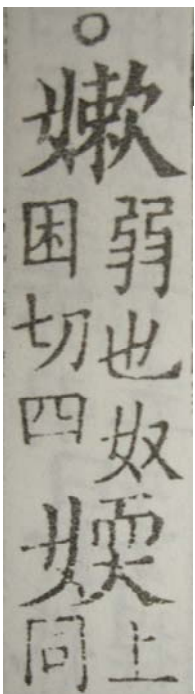 ○嫰
弱也奴
困切四
媆
上
同